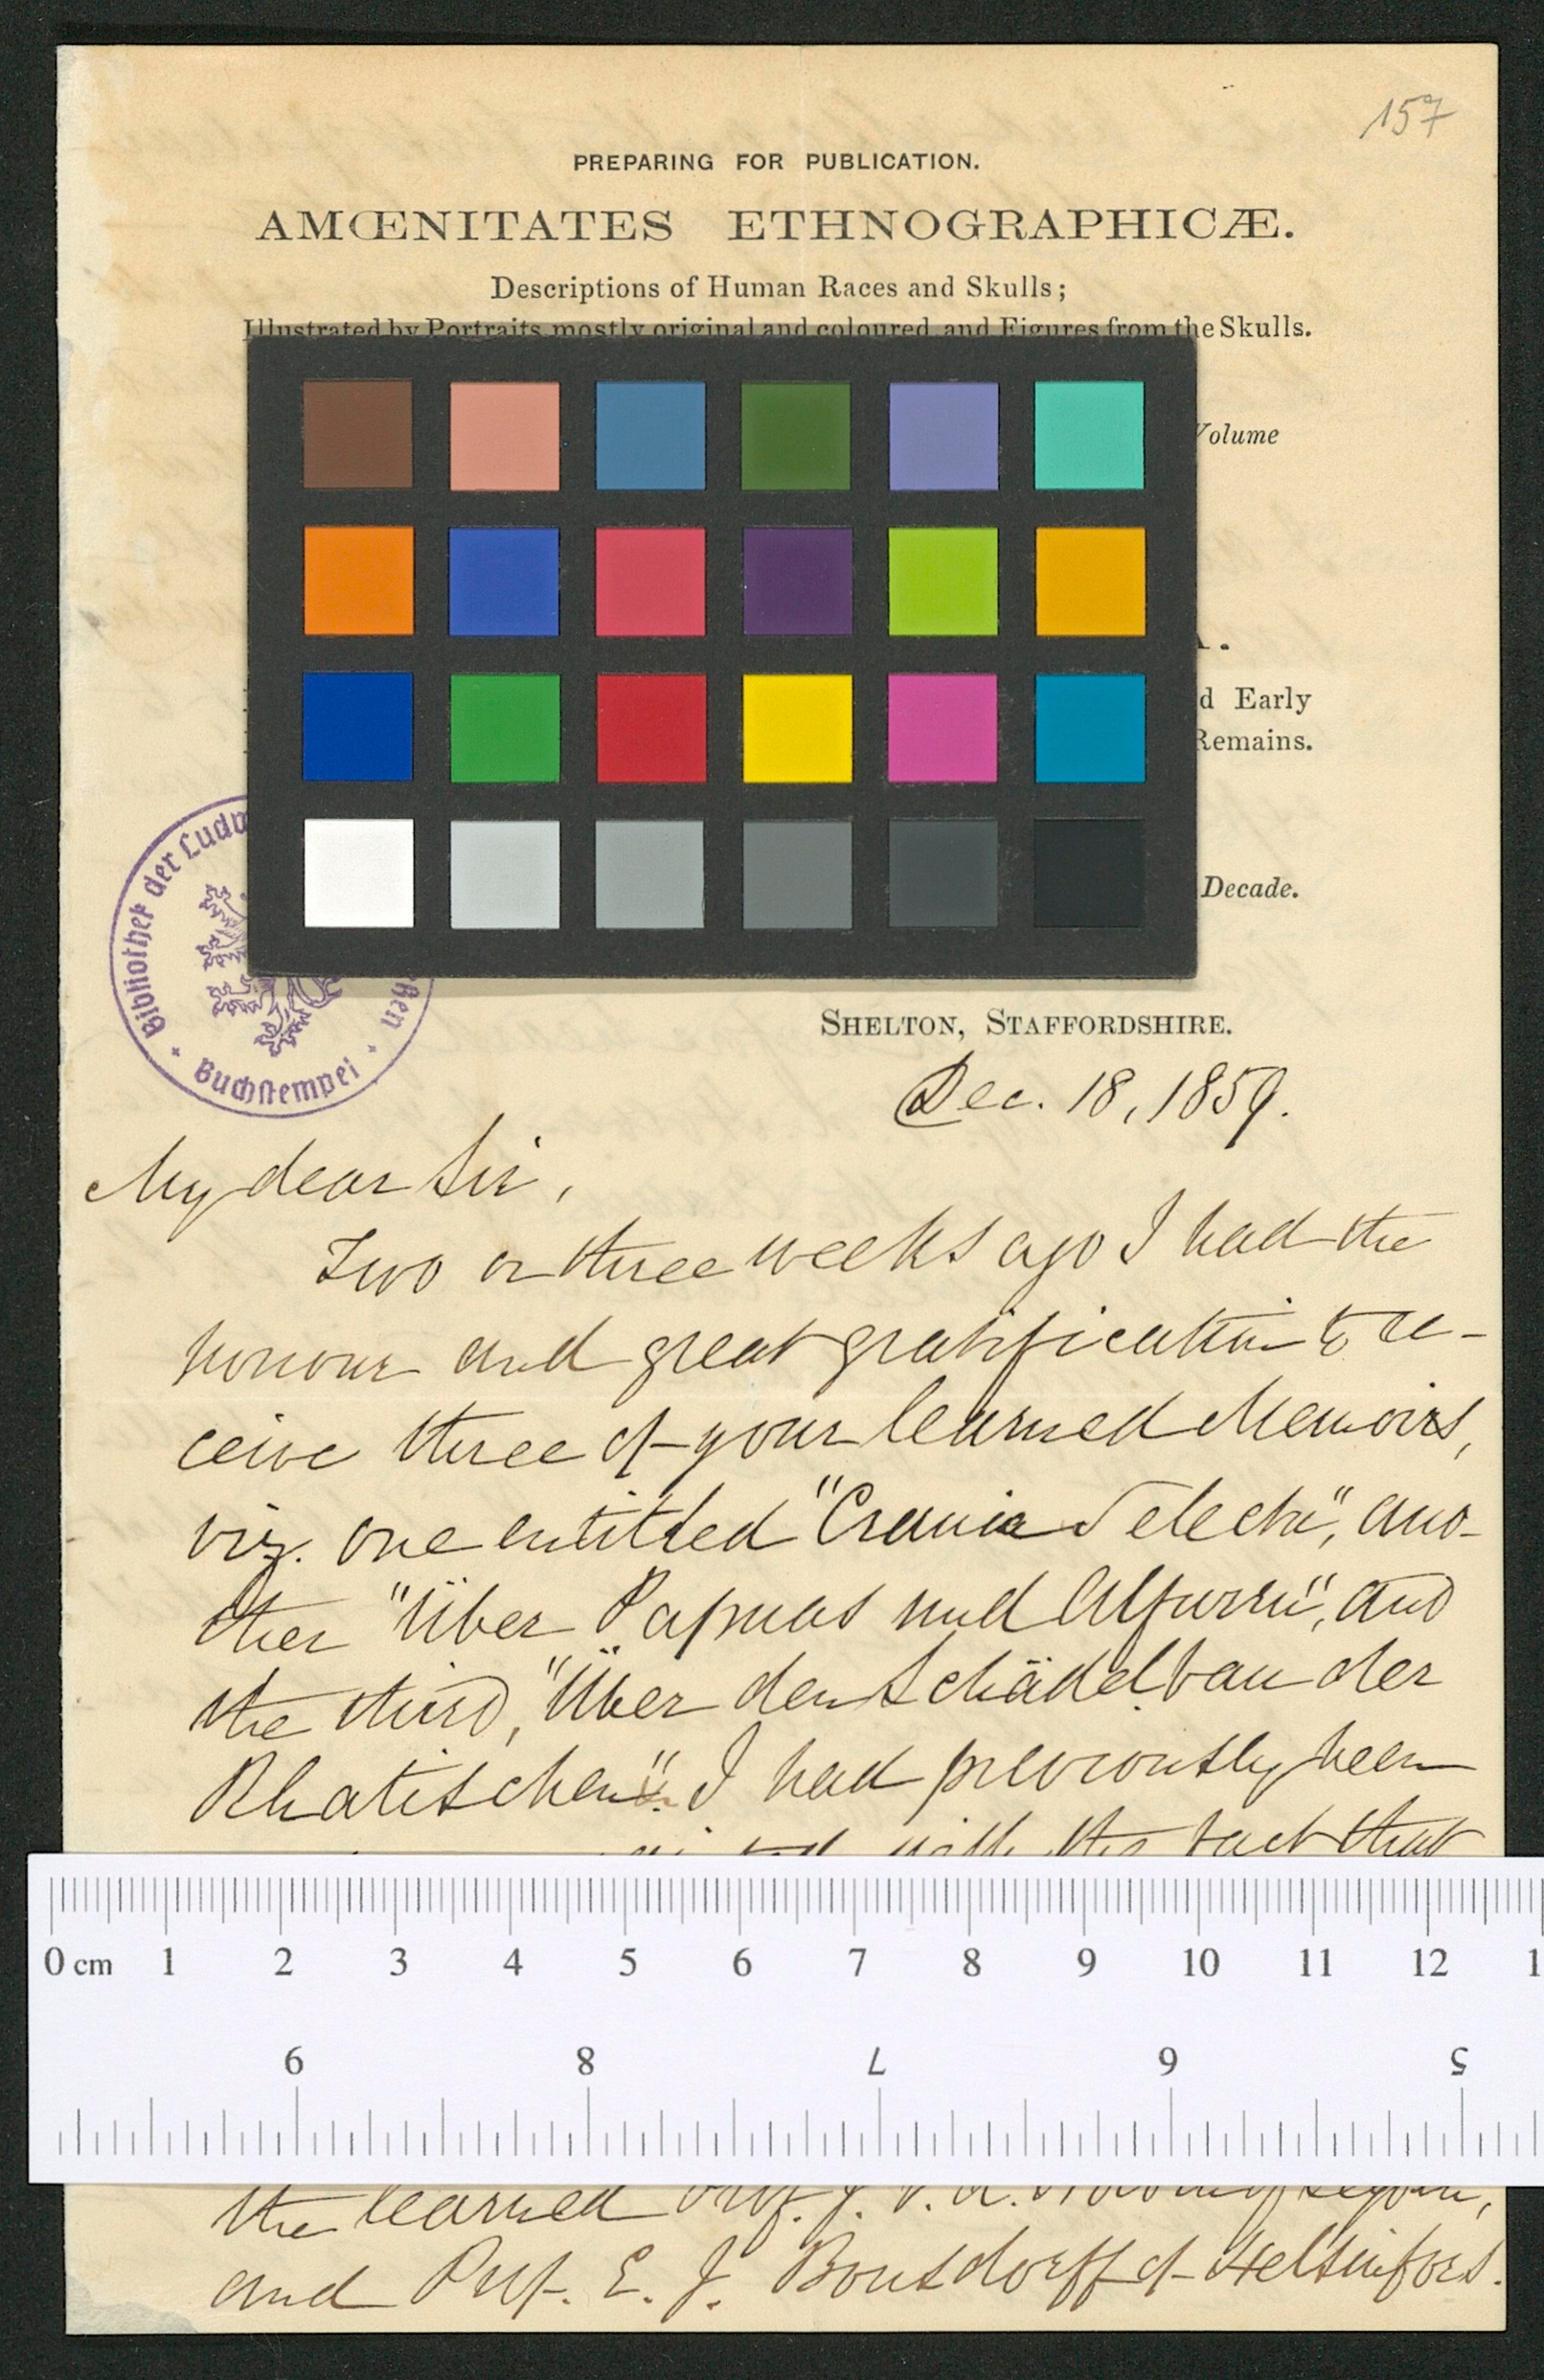 157
PREPARING FOR PUBLICATION.
AMŒNITATES ETHNOGRAPHICÆ.
Descriptions of Human Races and Skulls;
Illustrated by Portraits mostly original and coloured, and Figures from the Skulls.
Volume
d Early
Remains.
Decade.
Bibliothek der Ludw
Buchstempel
SHELTON, STAFFORDSHIRE.
Dec. 18, 1859.
My dear Sir,
Two or three weeks ago I had the
honour and great gratification to re-
ceive three of your learned Memoirs,
viz. one entitled "Crania Selecta", ano-
ther "Über Papuas und Alfuren", and
the third, "Über den Schädelbau der
Rhatischen". I had previously been
with the fact that
0 cm 1 2 3 4 5 6 7 8 9 10 11 12 1
9 8 7 6 5
the learned Prof. J. V. d. Hoeven of Leyden,
and Prof. E. J. Bonsdorff of Helsinfors.